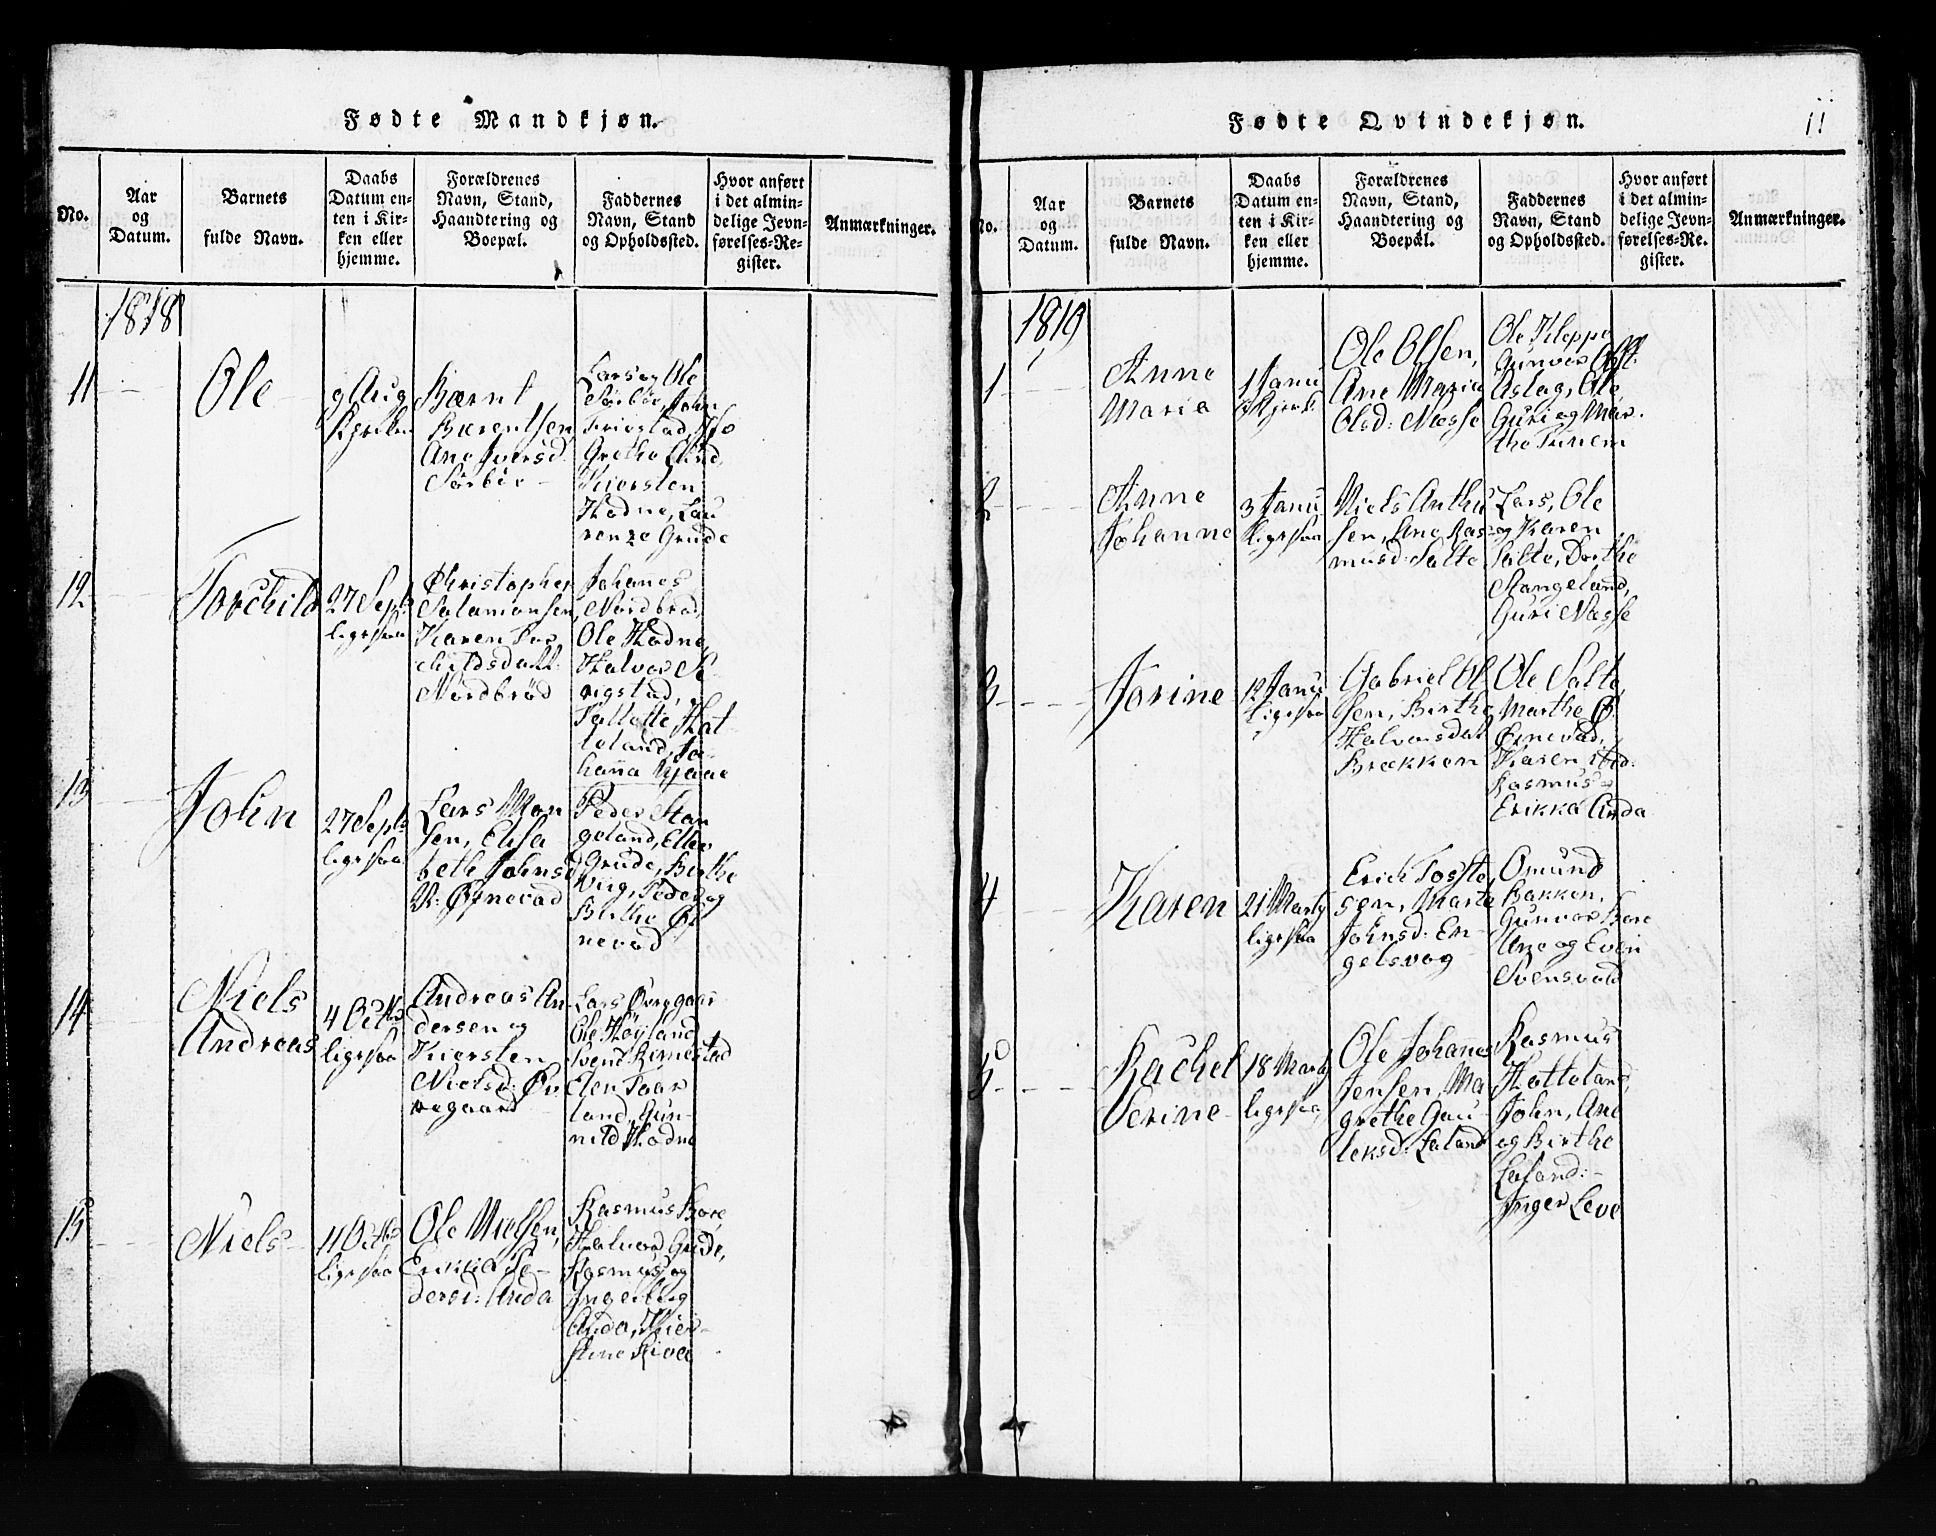 Fødte Mandkjøn.
No.
Aar
og
Datum.
Barnets
fulde Navn.
Daabs
Datum en-
ten i Kir-
ken eller
hjemme.
Forældrenes
Navn, Stand,
Haandtering og
Boepæl.
Faddernes
Navn, Stand
og Opholdssted.
Hvor anført
i det almin-
delige Jevn-
førelses-Re-
gister.
Anmærkninger.
1818
11
Ole
9 Aug
Kjrken
Bærnt
Bærentsen
Ane Iversd.
Sørbøe
Lars og Ole
Sørbøe, John
Friestad,
Grethe Lind,
Kiersten
Hodne, Lau
renze Grude
12
Torchild
27 Sept
ligesaa
Christopher
Salamonsen,
Karen Tor
childsdatt.
Nordbrød
Johanes
Nordbrød,
Ole Hodne,
Halvor Se
rigstad,
Hat
leland, Jo
hanna Kjaae
13
John
27 Sept
ligesaa
Lars Mon
sen, Elisa
beth Johnsd
N: Øxnevad
Peder Stan
geland, Ellen
Grude, Birthe
Wiig, Peder og
Birthe Øx
nevad
14
Niels
Andreas
4 Octbr
ligesaa
Andreas An
dersen og
Kiersten
Nielsd: Øv
regaard
Lars Øvregaar
Ole Høyland
Svend Rimestad
Elen Taar
land, Gun
nild Hodne
15
Niels
11 Octbr
ligesaa
Ole Nielsen,
Erikka Pe-
dersd: Anda
Rasmus Bore,
Halvord Grude,
Rasmus og
Ingeborg
Anda, Kier-
stine
Fødte Qvindekjøn.
11
No.
Aar
og
Datum.
Barnets
fulde Navn.
Daabs
Datum en-
ten i Kir-
ken eller
hjemme.
Forældrenes
Navn, Stand,
Haandtering og
Boepæl.
Faddernes
Navn, Stand
og Opholdssted.
Hvor anført
i det almin-
delige Jevn-
førelses-Re-
gister.
Anmærkninger.
1819
1
Anne
Maria
1 Janu
i Kjerk:
Ole Olsen,
Ane Maria
Olsd: Næsse
Ole Kleppe
Gunvor
Aslag, Ole,
Guri og Mar
the Tunem
2
Anne
Johanne
3 Janu
ligesaa
Niels Anthu
sen, Ane Ras-
musd: Salte
Lars, Ole
og Karen
Salte, Dorthe
Stangeland,
Guri Næsse
3
Jorine
12 Janu
ligesaa
Gabriel Ol
sen, Birthe
Halvorsdat
Brækken
Ole Salte
Marthe B:
Ørnevad,
Karen
Rasmus
Erikka Anda
4
Karen
21 Marty
ligesaa
Erich Toste
sen, Marta
Johnsd: En-
gelsvog
Omund
Bakken,
Gunvor Bore
Ane og Even
Svensvold
5
Rachel
Serine
18 Marty
ligesaa
Ole Johanes
Jensen, Ma
grethe Gau-
leksd: Laland
Rasmus
Hatteland,
John, Ane
og Birthe
Laland:
Inger Leve